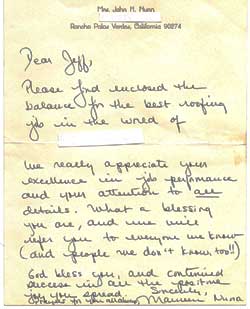 Mrs. John M. Nunn
Rancho Palos Verdes, California 90274
Dear Jeff,
Please find enclosed the
balance for the best roofing
job in the world of
We really appreciate your
excellence in job performance
and your attention to all
details. What a blessing
you are, and we will
refer you to everyone we know
(and people we don't know, too!!)
God bless you, and continued
success in all the positive
you spread. Sincerely,
for you
Nunn